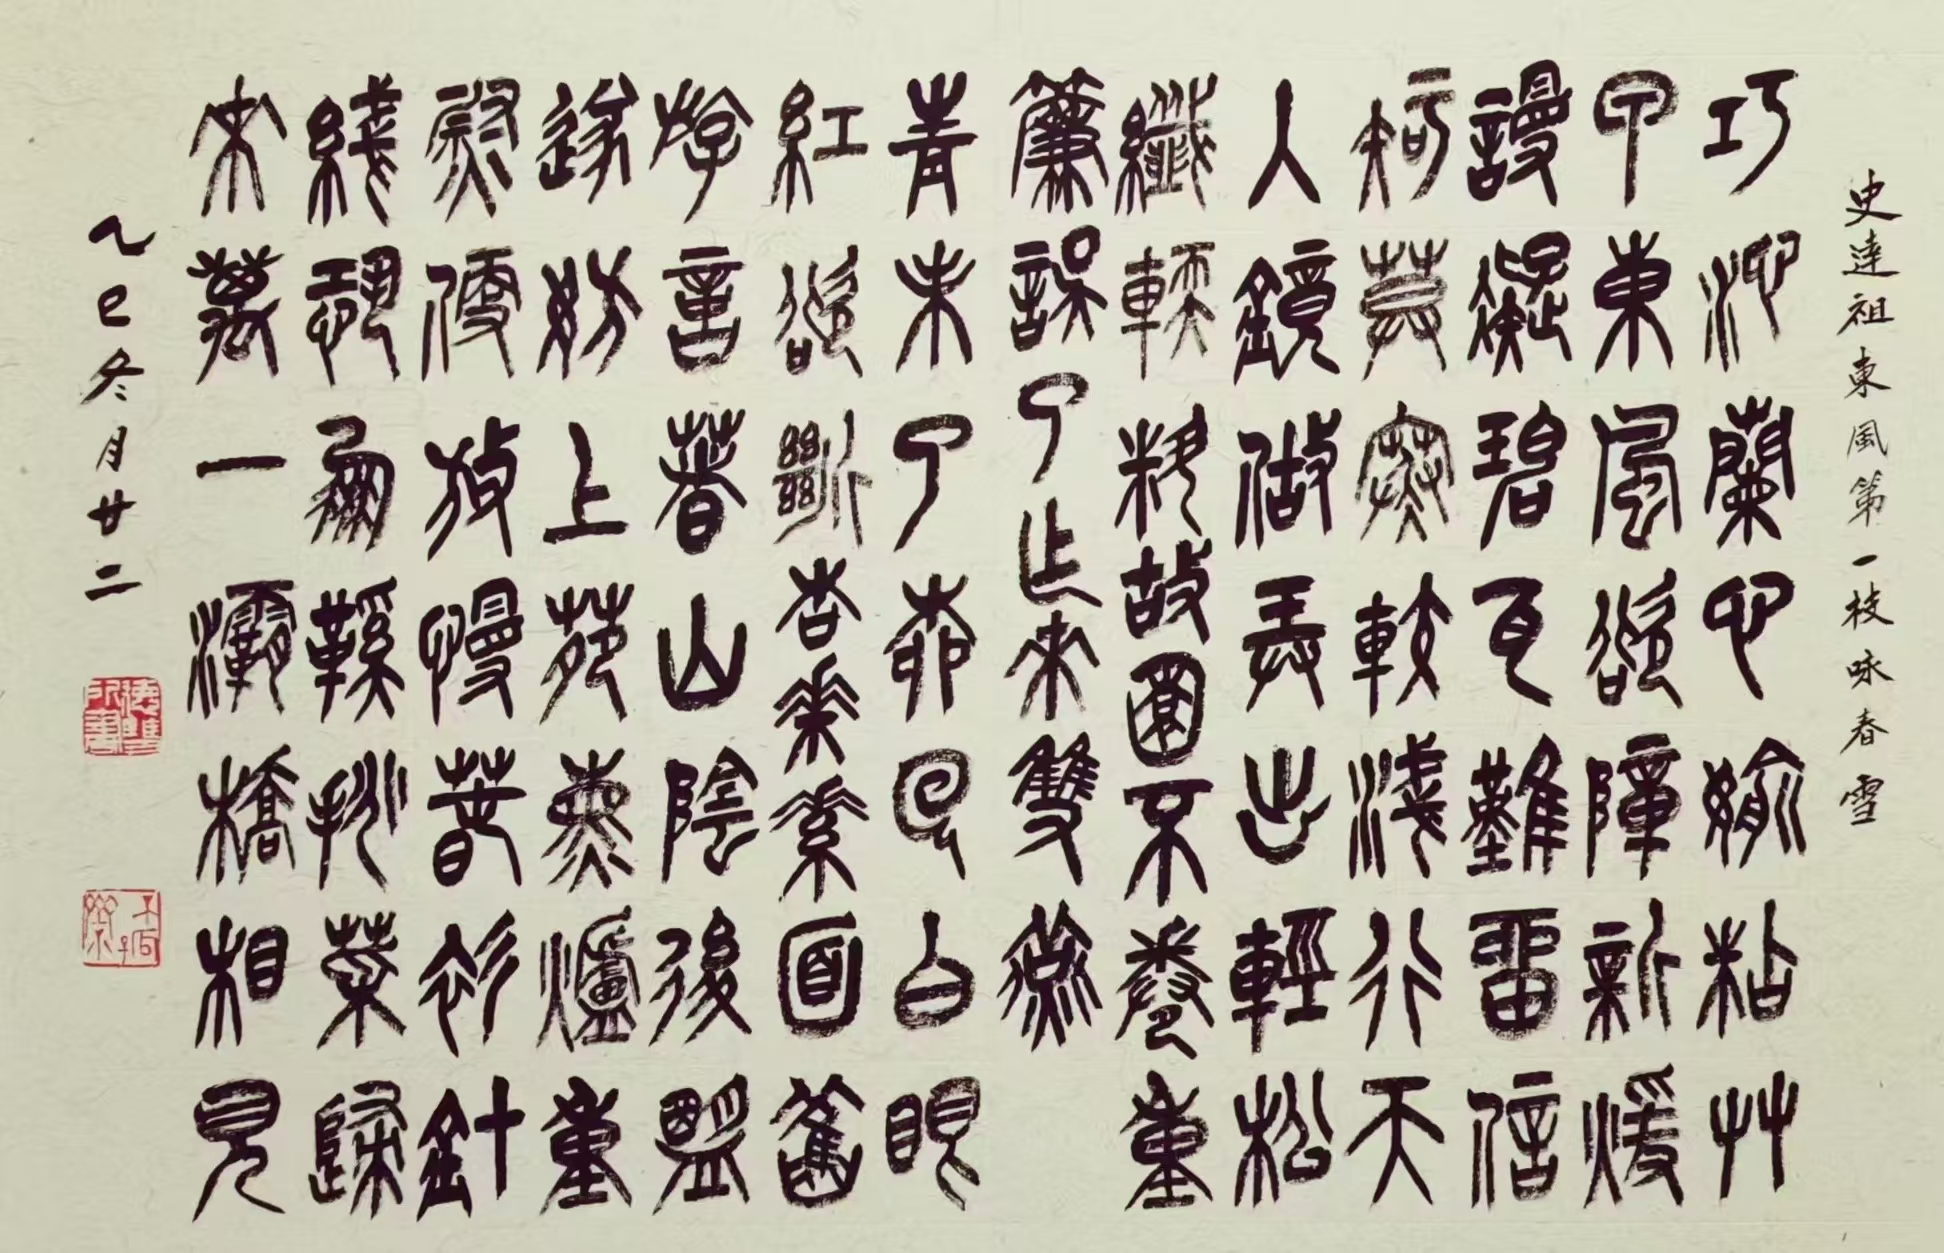 史達祖東風第一枝咏春雪
巧沁蘭心媮粘艸
甲東風欲障新煖
謾凝碧瓦難畱信
知莫寒較淺行天
入鏡做弄出輕松
纖輭料故園不卷重
簾誤了乍來雙燕
青未了柳回白眼
紅欲斷杏華素面舊
游意著山陰後盟
遂妨上苑熏爐重
熨便放慢春衫針
綫恐鳳鞵挑菜歸
來萬一灞橋相見
乙巳冬月廿二